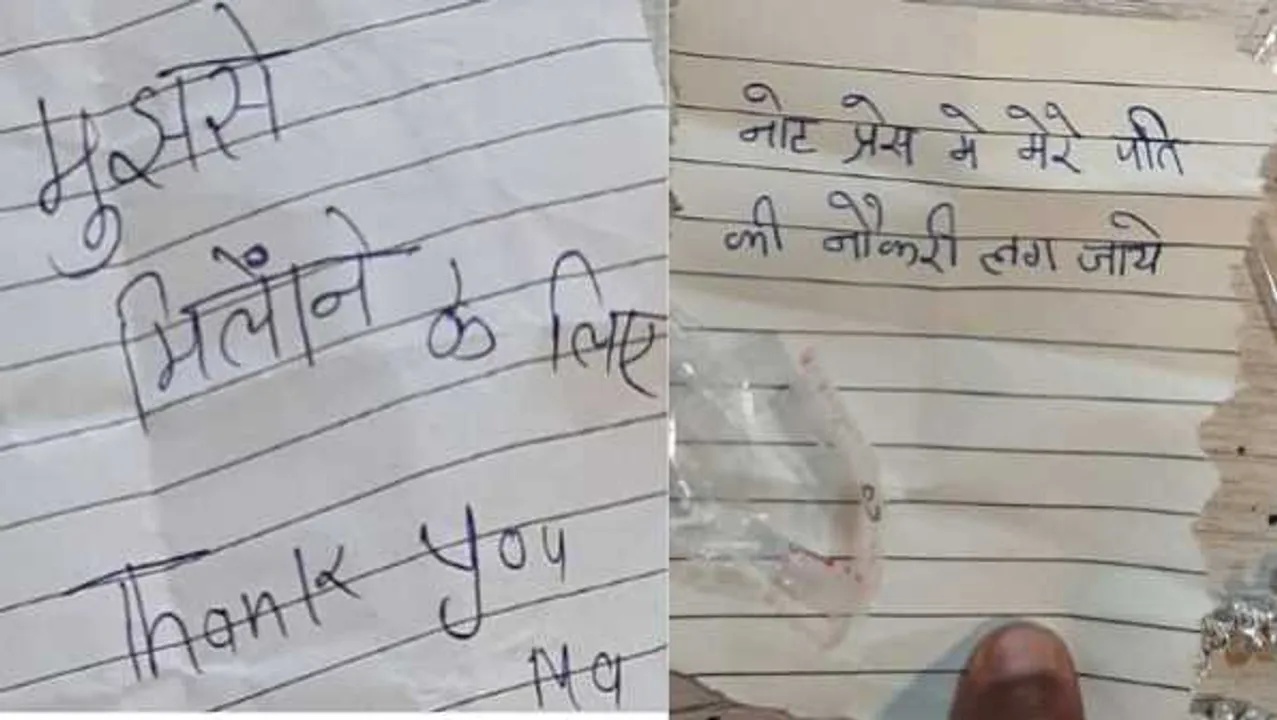 मुझसे
मिलोंने के लिए
Thank you
Ma
नोट प्रेस मे मेरे पति
की नौकरी लग जाये